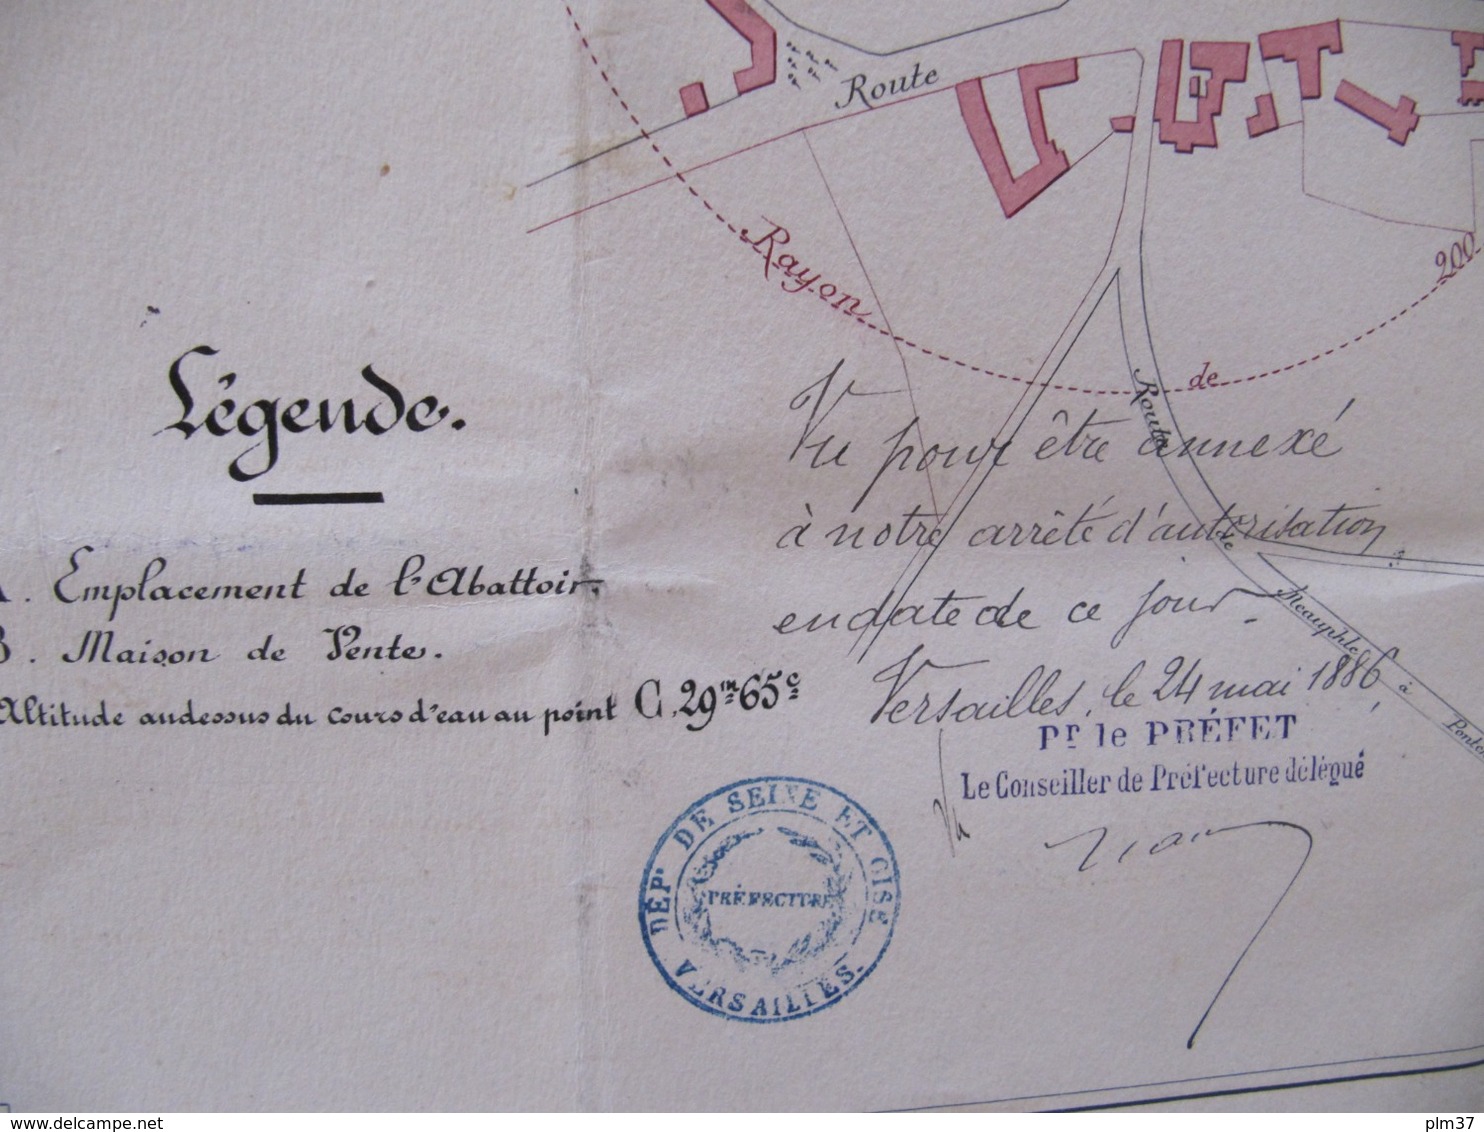 Route
Rayon
de
200
Légende.
A. Emplacement de l'Abattoir.
B. Maison de Vente.
Altitude au dessus du cours d'eau au point C. 29m 65c
Route
de
Neauphle
à
Vu pour être annexé
à notre arrêté d'autorisation
en date de ce jour.
Versailles, le 24 mai 1886,
Pr le PRÉFET
Le Conseiller de Préfecture délégué
DÉPt DE SEINE ET OISE
PRÉFECTURE
VERSAILLES.
delcampe.net
plm37